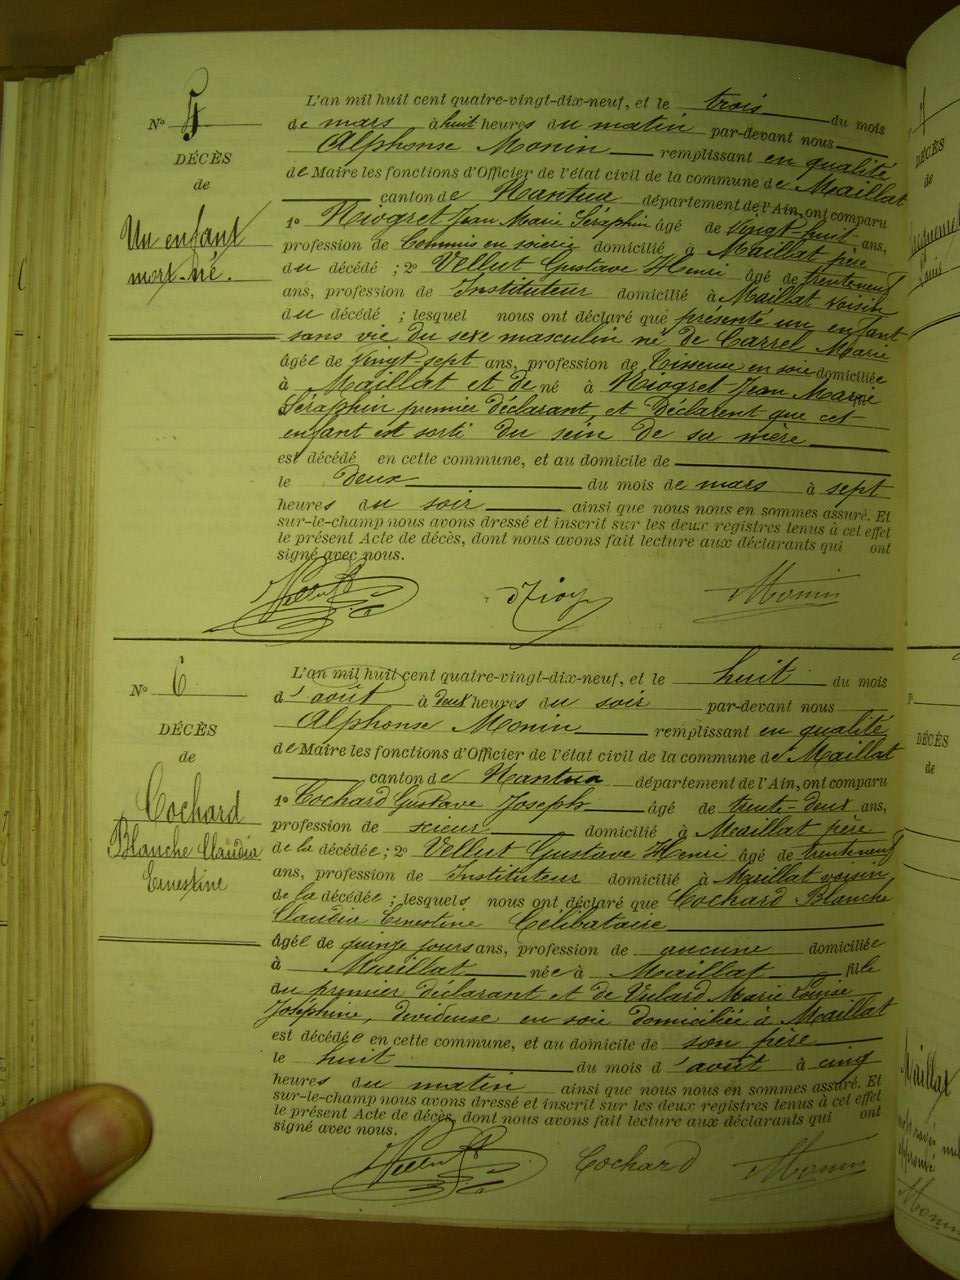 L'an mil huit cent quatre-vingt-dix-neuf, et le trois du mois
de mars à huit heures du matin par-devant nous
Alphonse Monin remplissant en qualité
de Maire les fonctions d'Officier de l'état civil de la commune de Maillat
canton de Nantua département de l'Ain, ont comparu
1° Niogret Jean Marie Séraphin âgé de vingt-huit ans,
profession de Commis en soierie domicilié à Maillat père
du décédé ; 2° Vellut Gustave Henri âgé de trente neuf
ans, profession de Instituteur domicilié à Maillat voisin
du décédé ; lesquel nous ont déclaré que présenté un enfant
sans vie du sexe masculin né de Carrel Marie
âgée de vingt-sept ans, profession de Tisseuse en soie domiciliée
à Maillat et de né à Niogret Jean Marie
Séraphin premier déclarant, et Déclarent que cet
enfant est sorti du sein de sa mère
est décédé en cette commune, et au domicile de
le deux du mois de mars à sept
heures du soir ainsi que nous nous en sommes assuré. Et
sur-le-champ nous avons dressé et inscrit sur les deux registres tenus à cet effet
le présent Acte de décès, dont nous avons fait lecture aux déclarants qui ont
signé avec nous.
N° 5
DÉCÈS
de
Un enfant
mort-né.
Vellut Monin
L'an mil huit cent quatre-vingt-dix-neuf, et le huit du mois
d'août à deux heures du soir par-devant nous
Alphonse Monin remplissant en qualité
de Maire les fonctions d'Officier de l'état civil de la commune de Maillat
canton de Nantua département de l'Ain, ont comparu
1° Cochard Gustave Joseph âgé de trente-deux ans,
profession de scieur domicilié à Maillat père
de la décédée ; 2° Vellut Gustave Henri âgé de trente neuf
ans, profession de Instituteur domicilié à Maillat voisin
de la décédée ; lesquels nous ont déclaré que Cochard Blanche
Claudia Ernestine Célibataire
âgée de quinze jours ans, profession de aucune domiciliée
à Maillat née à Maillat fille
du premier déclarant et de Vulard Marie Louise
Joséphine, dévideuse en soie domiciliée à Maillat
est décédée en cette commune, et au domicile de son père
le huit du mois d'août à cinq
heures du matin ainsi que nous nous en sommes assuré. Et
sur-le-champ nous avons dressé et inscrit sur les deux registres tenus à cet effet
le présent Acte de décès, dont nous avons fait lecture aux déclarants qui ont
signé avec nous.
N° 6
DÉCÈS
de
Cochard
Blanche Claudia
Ernestine
Vellut Cochard Monin
DÉCÈS
de
Louis
DÉCÈS
de
Maillat
approuvé
Monin